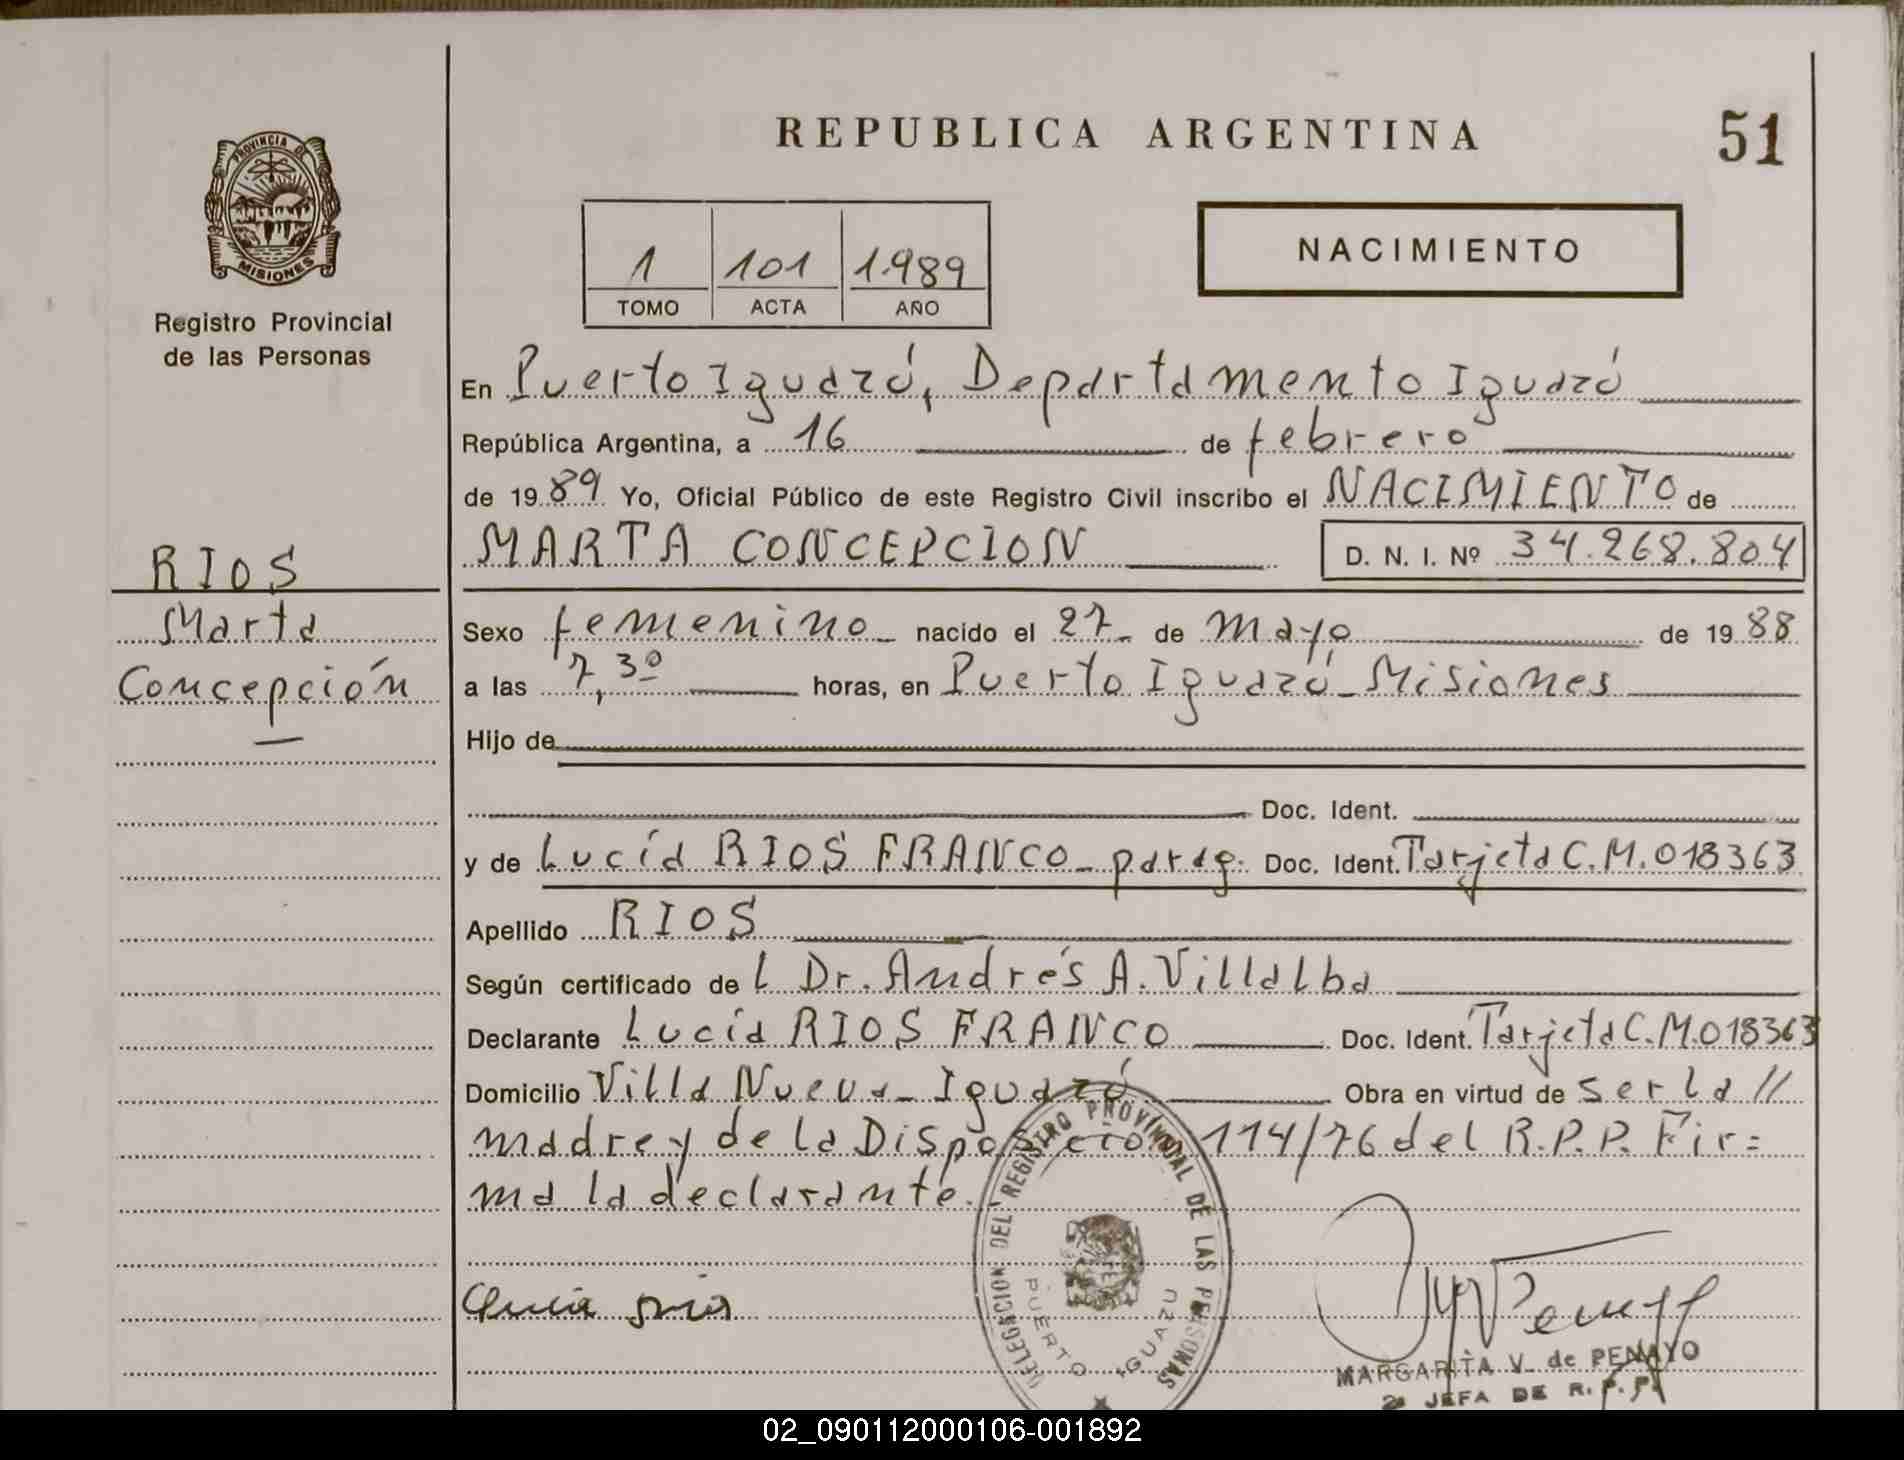 REPUBLICA ARGENTINA
51
PROVINCIA DE
MISIONES
Registro Provincial
de las Personas
1 101 1.989
TOMO ACTA AÑO
NACIMIENTO
En Puerto Iguazú, Departamento Iguazú
República Argentina, a 16 de febrero
de 1989 Yo, Oficial Público de este Registro Civil inscribo el NACIMIENTO de
MARTA CONCEPCION
D. N. I. Nº 34.268.804
RIOS
Marta
Concepción
Sexo femenino nacido el 27 de mayo de 1988
a las 7,30 horas, en Puerto Iguazú - Misiones
Hijo de
Doc. Ident.
y de Lucía RIOS FRANCO - parag. Doc. Ident. Tarjeta C.M. 018363
Apellido RIOS
Según certificado de l Dr. Andrés A. Villalba
Declarante Lucía RIOS FRANCO Doc. Ident. Tarjeta C.M. 018363
Domicilio Villa Nueva - Iguazú Obra en virtud de ser la //
madre y de la Disposición 114/76 del R.P.P. Fir=
ma la declarante.
DELEGACION DEL REGISTRO PROVINCIAL DE LAS PERSONAS
PUERTO IGUAZU
MARGARITA V. de PENAYO
2a JEFA DE R. P. P.
02_090112000106-001892